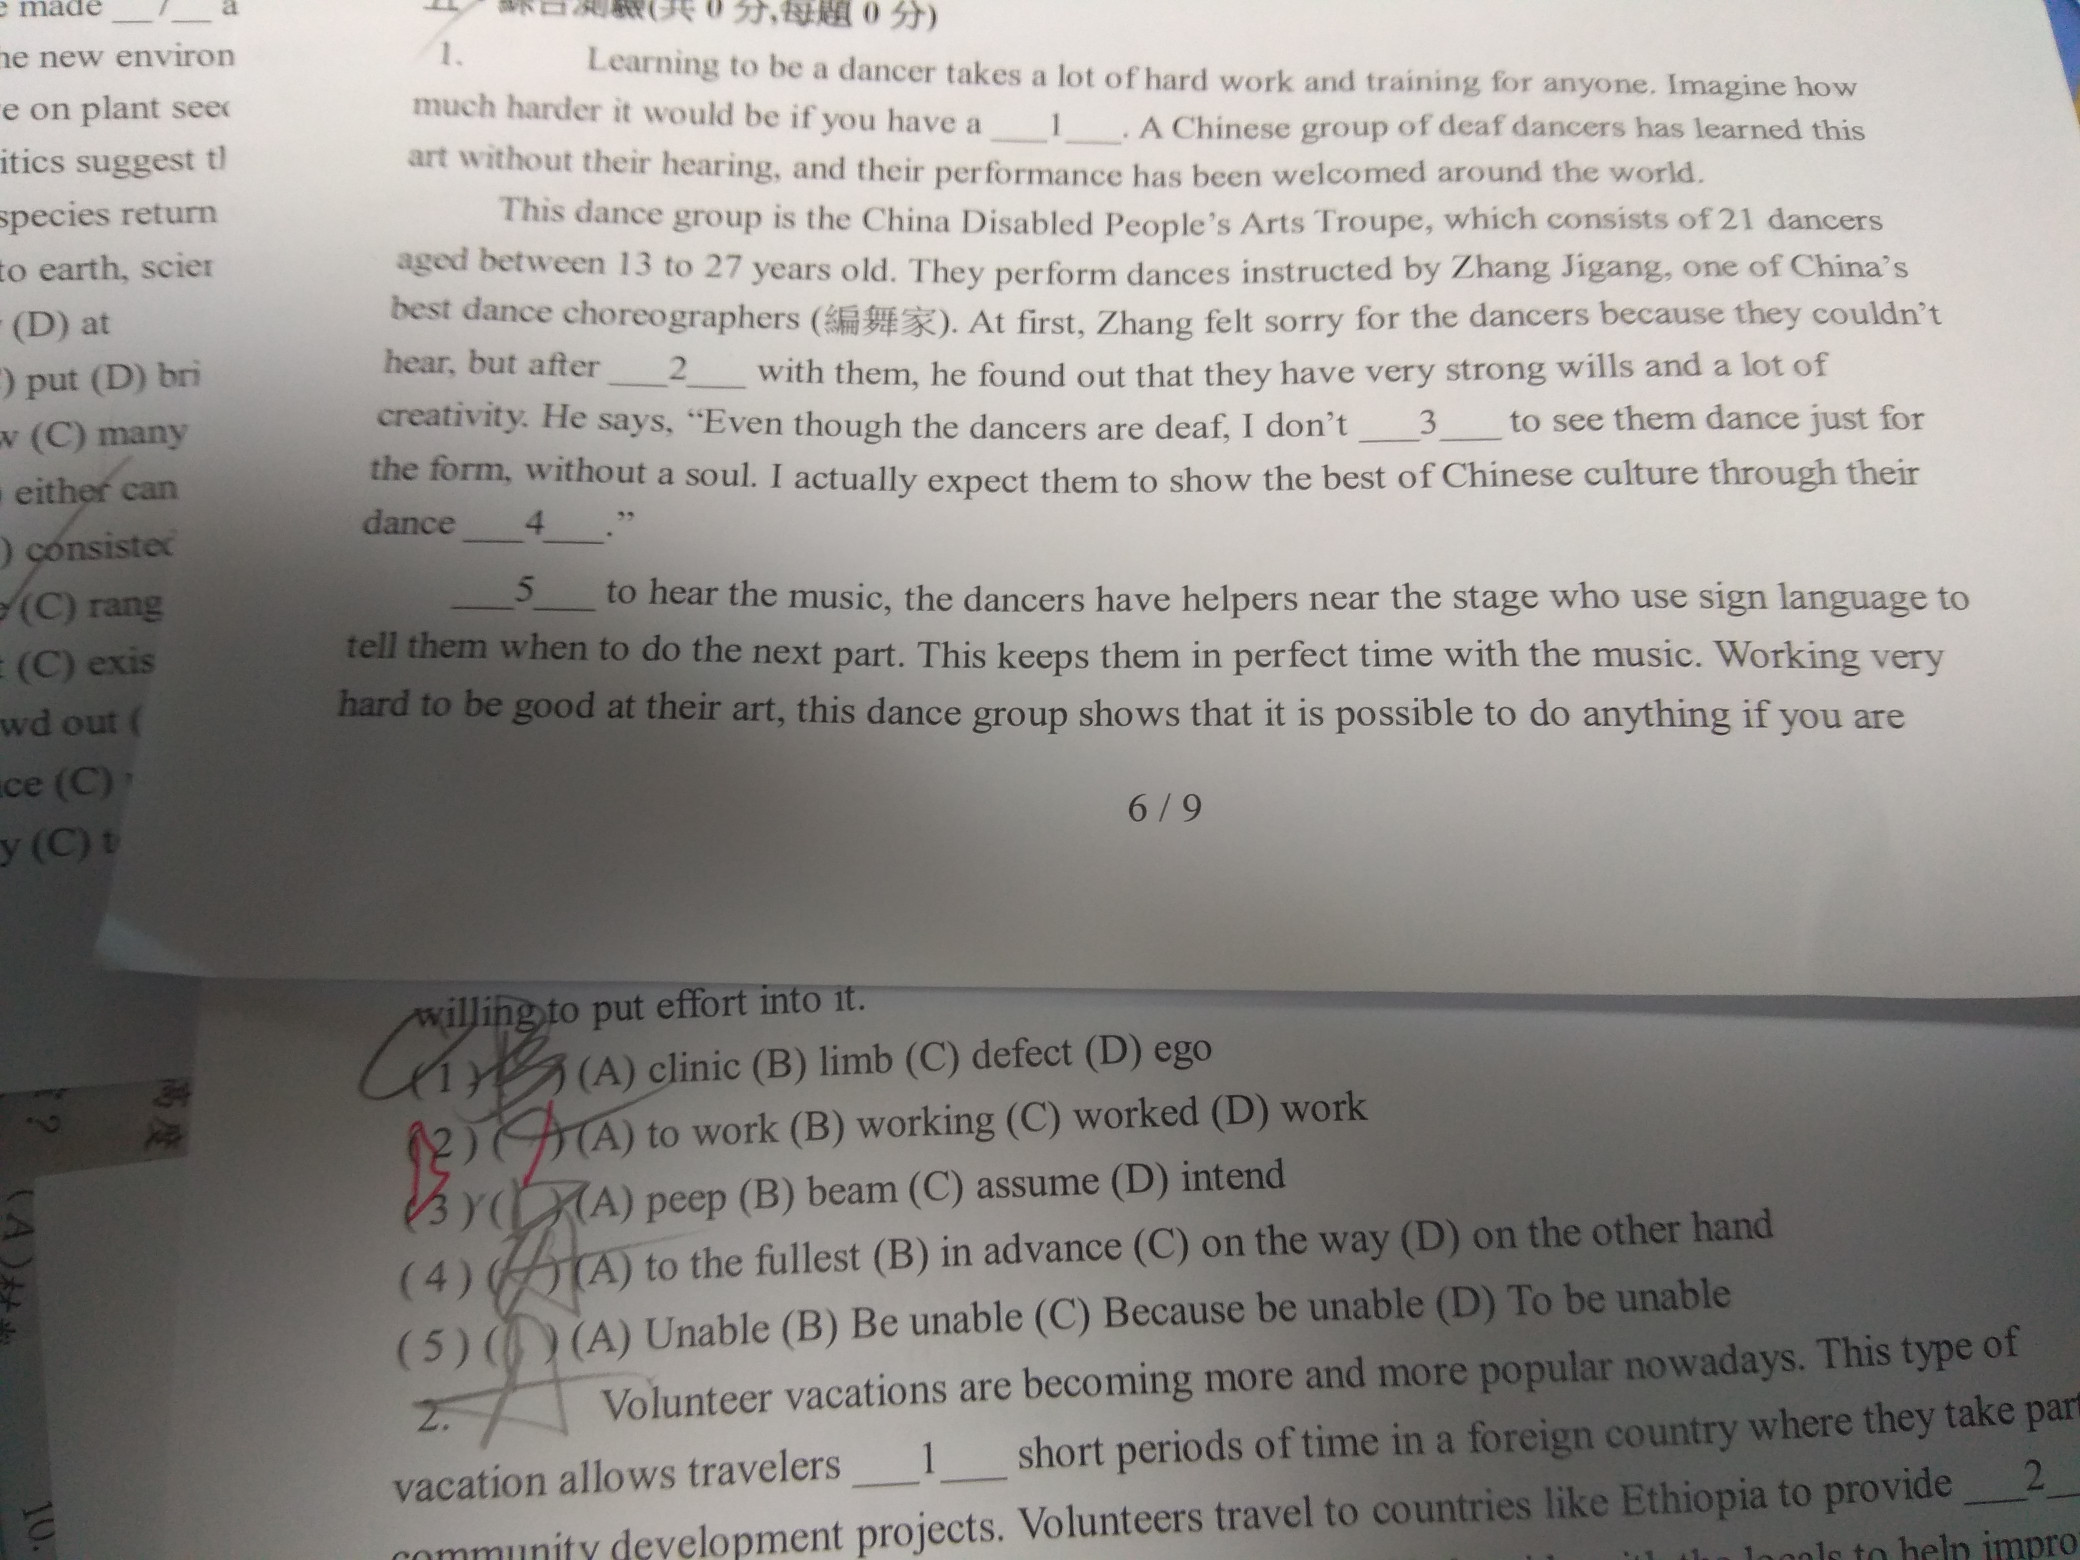 e made ___7___ a
he new environ
e on plant seed
itics suggest th
species return
to earth, scien
(D) at
) put (D) bri
w (C) many
either can
) consisted
(C) rang
(C) exis
wd out (
ce (C)
y (C) t
五、綜合測驗(共 0 分,每題 0 分)
1. Learning to be a dancer takes a lot of hard work and training for anyone. Imagine how
much harder it would be if you have a ___1___. A Chinese group of deaf dancers has learned this
art without their hearing, and their performance has been welcomed around the world.
This dance group is the China Disabled People's Arts Troupe, which consists of 21 dancers
aged between 13 to 27 years old. They perform dances instructed by Zhang Jigang, one of China's
best dance choreographers (編舞家). At first, Zhang felt sorry for the dancers because they couldn't
hear, but after ___2___ with them, he found out that they have very strong wills and a lot of
creativity. He says, “Even though the dancers are deaf, I don't ___3___ to see them dance just for
the form, without a soul. I actually expect them to show the best of Chinese culture through their
dance ___4___.”
___5___ to hear the music, the dancers have helpers near the stage who use sign language to
tell them when to do the next part. This keeps them in perfect time with the music. Working very
hard to be good at their art, this dance group shows that it is possible to do anything if you are
6 / 9
willing to put effort into it.
(1) ( ) (A) clinic (B) limb (C) defect (D) ego
(2) ( ) (A) to work (B) working (C) worked (D) work
(3) ( ) (A) peep (B) beam (C) assume (D) intend
(4) ( ) (A) to the fullest (B) in advance (C) on the way (D) on the other hand
(5) ( ) (A) Unable (B) Be unable (C) Because be unable (D) To be unable
2. Volunteer vacations are becoming more and more popular nowadays. This type of
vacation allows travelers ___1___ short periods of time in a foreign country where they take part
community development projects. Volunteers travel to countries like Ethiopia to provide ___2___
to help impro
(A)
10.